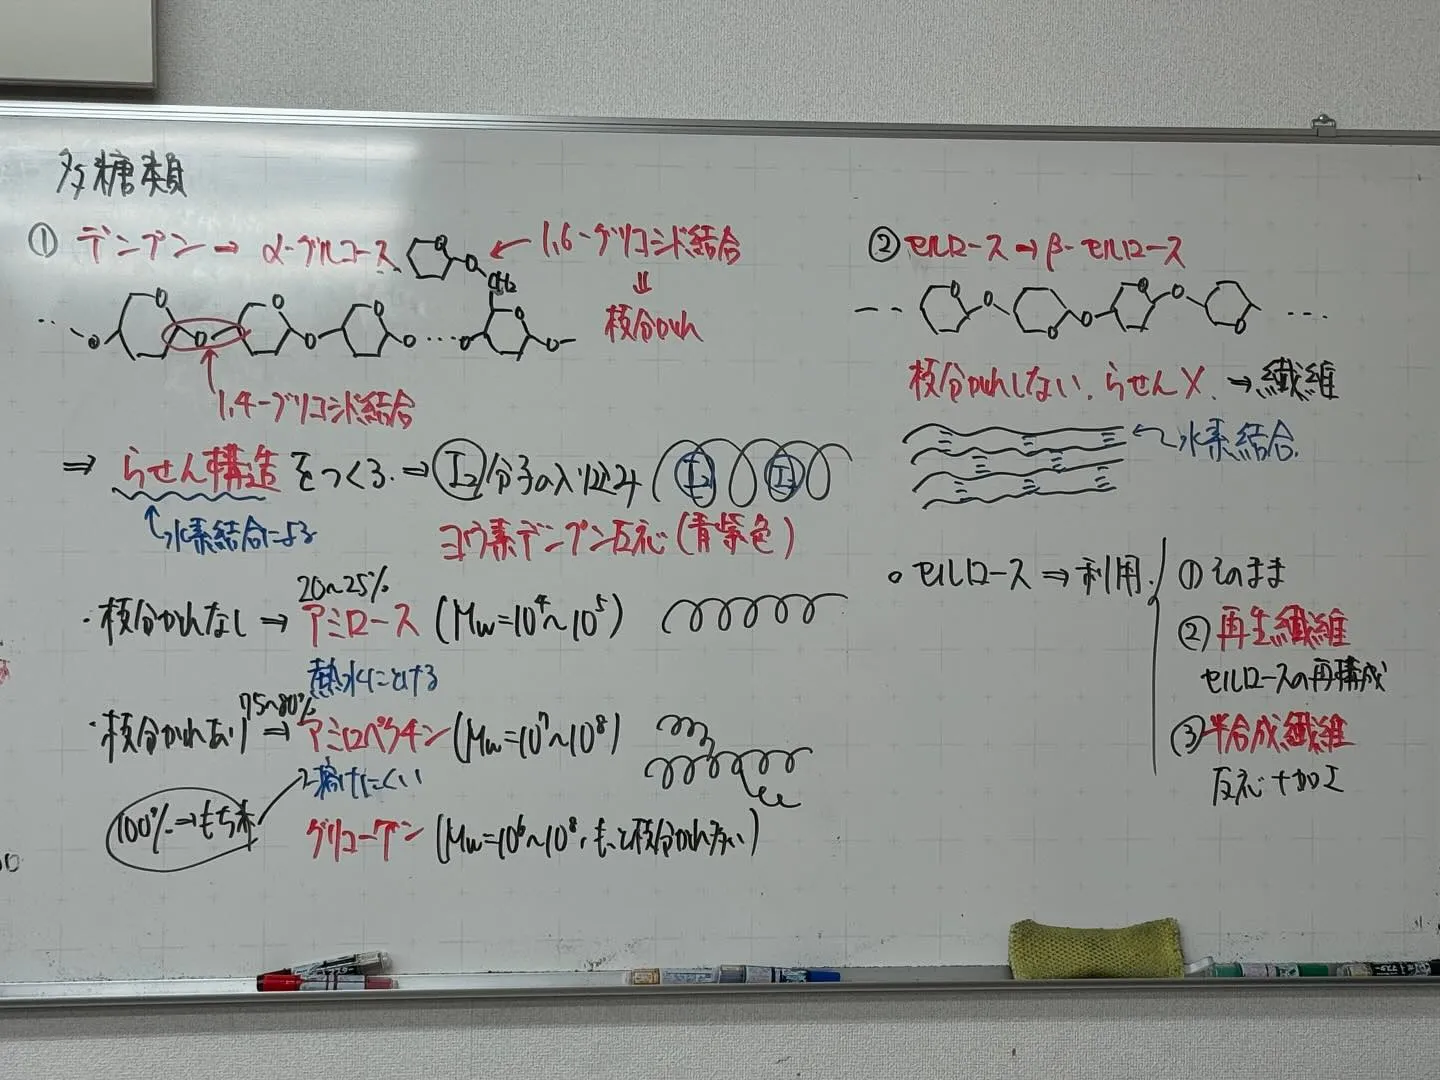 多糖類
① デンプン → α-グルコース
O
O
CH₂
← 1,6-グリコシド結合
⇓
枝分かれ
O O O O O O O … O O O
↑
1,4-グリコシド結合
⇒ らせん構造をつくる. ⇒ I₂ 分子の入り込み I₂ I₂
水素結合による
ヨウ素デンプン反応 (青紫色)
20~25%
・枝分かれなし ⇒ アミロース (Mw=10⁴~10⁵)
熱水にとける
75~80%
・枝分かれあり ⇒ アミロペクチン (Mw=10⁷~10⁸)
溶けにくい
100% → もち米
グリコーゲン (Mw=10⁶~10⁸, もっと枝分かれ多い)
② セルロース → β-セルロース
O O O O O O O …
枝分かれしない. らせん X. → 繊維
← 水素結合.
○ セルロース ⇒ 利用.
① そのまま
② 再生繊維
セルロースの再構成
③ 半合成繊維
反応+加工